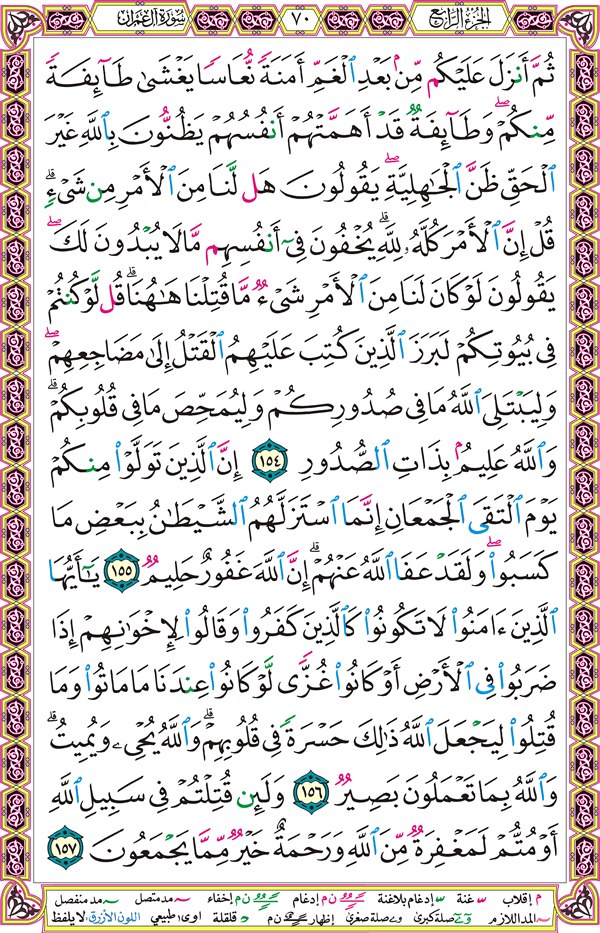 الجزء الرابع ٧٠ سورة آل عمران
ثُمَّ أَنزَلَ عَلَيْكُم مِّنۢ بَعْدِ ٱلْغَمِّ أَمَنَةً نُّعَاسًا يَغْشَىٰ طَآئِفَةً
مِّنكُمْ ۖ وَطَآئِفَةٌ قَدْ أَهَمَّتْهُمْ أَنفُسُهُمْ يَظُنُّونَ بِٱللَّهِ غَيْرَ
ٱلْحَقِّ ظَنَّ ٱلْجَٰهِلِيَّةِ ۖ يَقُولُونَ هَل لَّنَا مِنَ ٱلْأَمْرِ مِن شَىْءٍ ۗ
قُلْ إِنَّ ٱلْأَمْرَ كُلَّهُۥ لِلَّهِ ۗ يُخْفُونَ فِىٓ أَنفُسِهِم مَّا لَا يُبْدُونَ لَكَ ۖ
يَقُولُونَ لَوْ كَانَ لَنَا مِنَ ٱلْأَمْرِ شَىْءٌ مَّا قُتِلْنَا هَٰهُنَا ۗ قُل لَّوْ كُنتُمْ
فِى بُيُوتِكُمْ لَبَرَزَ ٱلَّذِينَ كُتِبَ عَلَيْهِمُ ٱلْقَتْلُ إِلَىٰ مَضَاجِعِهِمْ ۖ
وَلِيَبْتَلِىَ ٱللَّهُ مَا فِى صُدُورِكُمْ وَلِيُمَحِّصَ مَا فِى قُلُوبِكُمْ ۗ
وَٱللَّهُ عَلِيمٌۢ بِذَاتِ ٱلصُّدُورِ ١٥٤ إِنَّ ٱلَّذِينَ تَوَلَّوْا۟ مِنكُمْ
يَوْمَ ٱلْتَقَى ٱلْجَمْعَانِ إِنَّمَا ٱسْتَزَلَّهُمُ ٱلشَّيْطَٰنُ بِبَعْضِ مَا
كَسَبُوا۟ ۖ وَلَقَدْ عَفَا ٱللَّهُ عَنْهُمْ ۗ إِنَّ ٱللَّهَ غَفُورٌ حَلِيمٌ ١٥٥ يَٰٓأَيُّهَا
ٱلَّذِينَ ءَامَنُوا۟ لَا تَكُونُوا۟ كَٱلَّذِينَ كَفَرُوا۟ وَقَالُوا۟ لِإِخْوَٰنِهِمْ إِذَا
ضَرَبُوا۟ فِى ٱلْأَرْضِ أَوْ كَانُوا۟ غُزًّى لَّوْ كَانُوا۟ عِندَنَا مَا مَاتُوا۟ وَمَا
قُتِلُوا۟ لِيَجْعَلَ ٱللَّهُ ذَٰلِكَ حَسْرَةً فِى قُلُوبِهِمْ ۗ وَٱللَّهُ يُحْىِۦ وَيُمِيتُ ۗ
وَٱللَّهُ بِمَا تَعْمَلُونَ بَصِيرٌ ١٥٦ وَلَئِن قُتِلْتُمْ فِى سَبِيلِ ٱللَّهِ
أَوْ مُتُّمْ لَمَغْفِرَةٌ مِّنَ ٱللَّهِ وَرَحْمَةٌ خَيْرٌ مِّمَّا يَجْمَعُونَ ١٥٧
م إقلاب غنة إدغام بلاغنة ن م إدغام ن م إخفاء مد متصل مد منفصل
المد اللازم صلة كبرى صلة صغرى إظهار ن م قلقلة اوى طبيعي اللون الأزرق: لا يلفظ